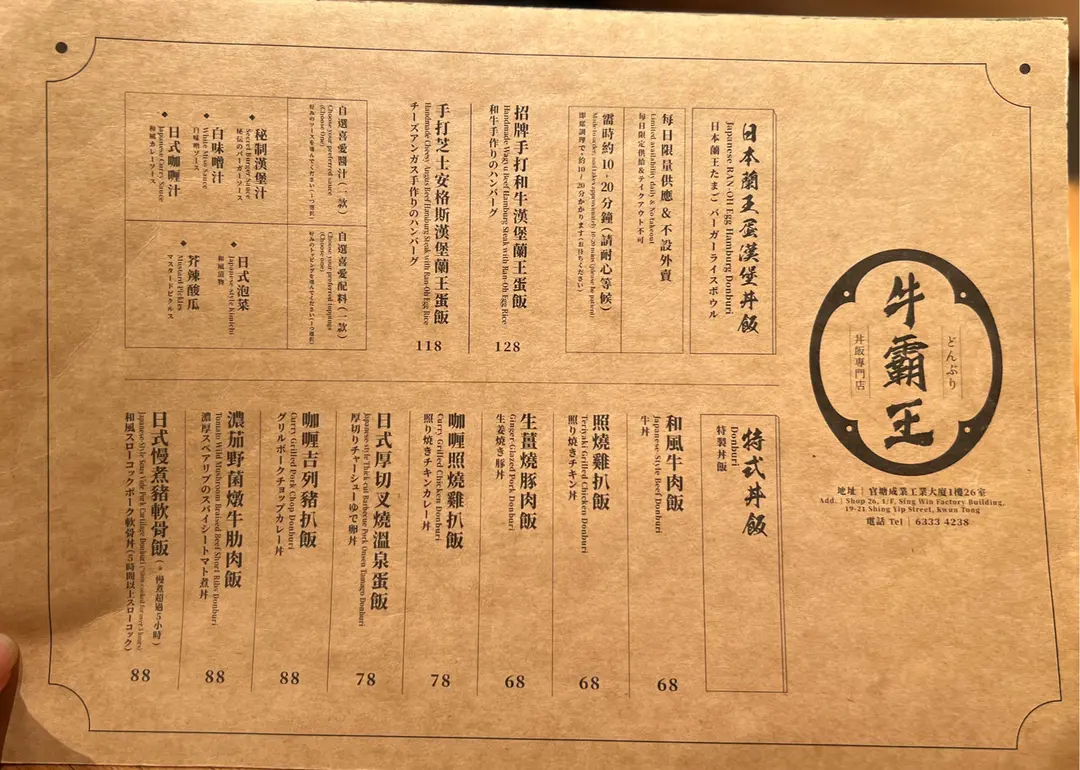 牛霸王
どんぶり
丼飯專門店
地址 | 官塘成業工業大廈1樓26室
Add. | Shop 26, 1/F, Sing Win Factory Building,
19-21 Shing Yip Street, Kwun Tong
電話 Tel | 6333 4238
日本蘭王蛋漢堡丼飯
Japanese RAN-OH Egg Hamburg Donburi
日本蘭王たまご バーガーライスボウル
每日限量供應 & 不設外賣
Limited availability daily & No takeout
毎日限定供給&テイクアウト不可
需時約10 - 20分鐘(請耐心等候)
Made to order, and takes approximately 10-20 mins (please be patient)
即席調理で、約10~20分かかります(お待ちください)
招牌手打和牛漢堡蘭王蛋飯
Handmade Wagyu Beef Hamburg Steak with Ran-Oh Egg Rice
和牛手作りのハンバーグ
128
手打芝士安格斯漢堡蘭王蛋飯
Handmade Cheesy Angus Beef Hamburg Steak with Ran-Oh Egg Rice
チーズアンガス手作りのハンバーグ
118
自選喜愛醬汁(一款)
Choose your preferred sauce
(Choose One)
◆ 秘制漢堡汁
Secret Burger Sauce
秘伝のバーガーソース
◆ 白味噌汁
White Miso Sauce
白味噌ソース
◆ 日式咖喱汁
Japanese Curry Sauce
和風カレーソース
自選喜愛配料(一款)
Choose your preferred toppings
(Choose One)
◆ 日式泡菜
Japanese-style Kimchi
和風漬物
◆ 芥辣酸瓜
Mustard Pickles
マスタードピクルス
特式丼飯
Donburi
特製丼飯
和風牛肉飯
Japanese-Style Beef Donburi
牛丼
68
照燒雞扒飯
Teriyaki Grilled Chicken Donburi
照り焼きチキン丼
68
生薑燒豚肉飯
Ginger-Glazed Pork Donburi
生姜焼き豚丼
68
咖喱照燒雞扒飯
Curry Grilled Chicken Donburi
照り焼きチキンカレー丼
78
日式厚切叉燒溫泉蛋飯
Japanese-style Thick-cut Barbecue Pork Onsen Tamago Donburi
厚切りチャーシューゆで卵丼
78
咖喱吉列豬扒飯
Curry Grilled Pork Chop Donburi
グリルポークチョップカレー丼
88
濃茄野菌燉牛肋肉飯
Tomato Wild Mushroom Braised Beef Short Ribs Donburi
濃厚スペアリブのスパイシートマト煮丼
88
日式慢煮豬軟骨飯(* 慢煮超過5小時)
Japanese-Style Sous Vide Pork Cartilage Donburi (*Slow cooked for over 5 hours)
和風スローコックポーク軟骨丼(5時間以上スローコック)
88